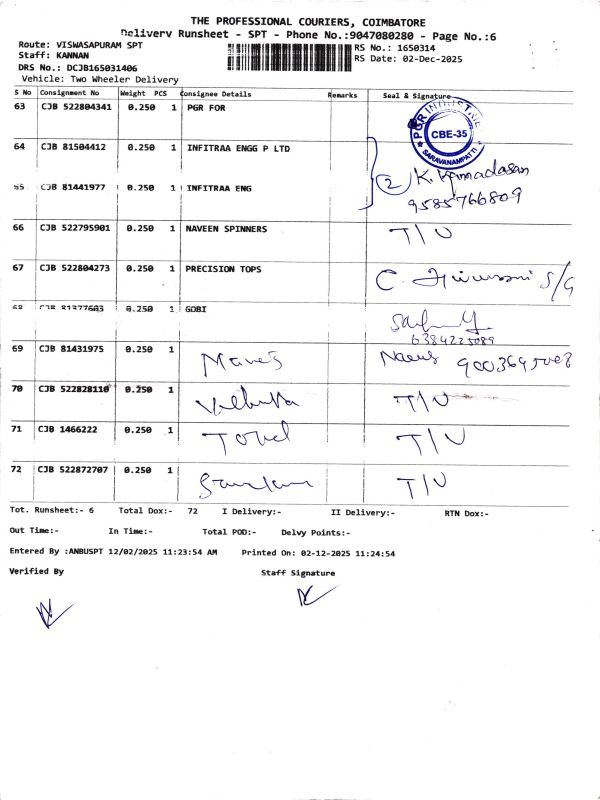 THE PROFESSIONAL COURIERS, COIMBATORE
Delivery Runsheet - SPT - Phone No.:9047080280 - Page No.:6
Route: VISWASAPURAM SPT
RS No.: 1650314
Staff: KANNAN
RS Date: 02-Dec-2025
DRS No.: DCJB165031406
Vehicle: Two Wheeler Delivery
S No Consignment No Weight PCS Consignee Details Remarks Seal & Signature
63 CJB 522804341 0.250 1 PGR FOR
PGR INDUSTRIE
CBE-35
SARAVANAMPATTI
64 CJB 81504412 0.250 1 INFITRAA ENGG P LTD
2
65 CJB 81441977 0.250 1 INFITRAA ENG
9585766809
66 CJB 522795901 0.250 1 NAVEEN SPINNERS T/U
67 CJB 522804273 0.250 1 PRECISION TOPS C. S/G
68 CJB 81377603 0.250 1 GOBI
6384225089
69 CJB 81431975 0.250 1
70 CJB 522828110 0.250 1 T/U
71 CJB 1466222 0.250 1 T/U
72 CJB 522872707 0.250 1 T/U
Tot. Runsheet:- 6 Total Dox:- 72 I Delivery:- II Delivery:- RTN Dox:-
Out Time:- In Time:- Total POD:- Delvy Points:-
Entered By :ANBUSPT 12/02/2025 11:23:54 AM Printed On: 02-12-2025 11:24:54
Verified By Staff Signature